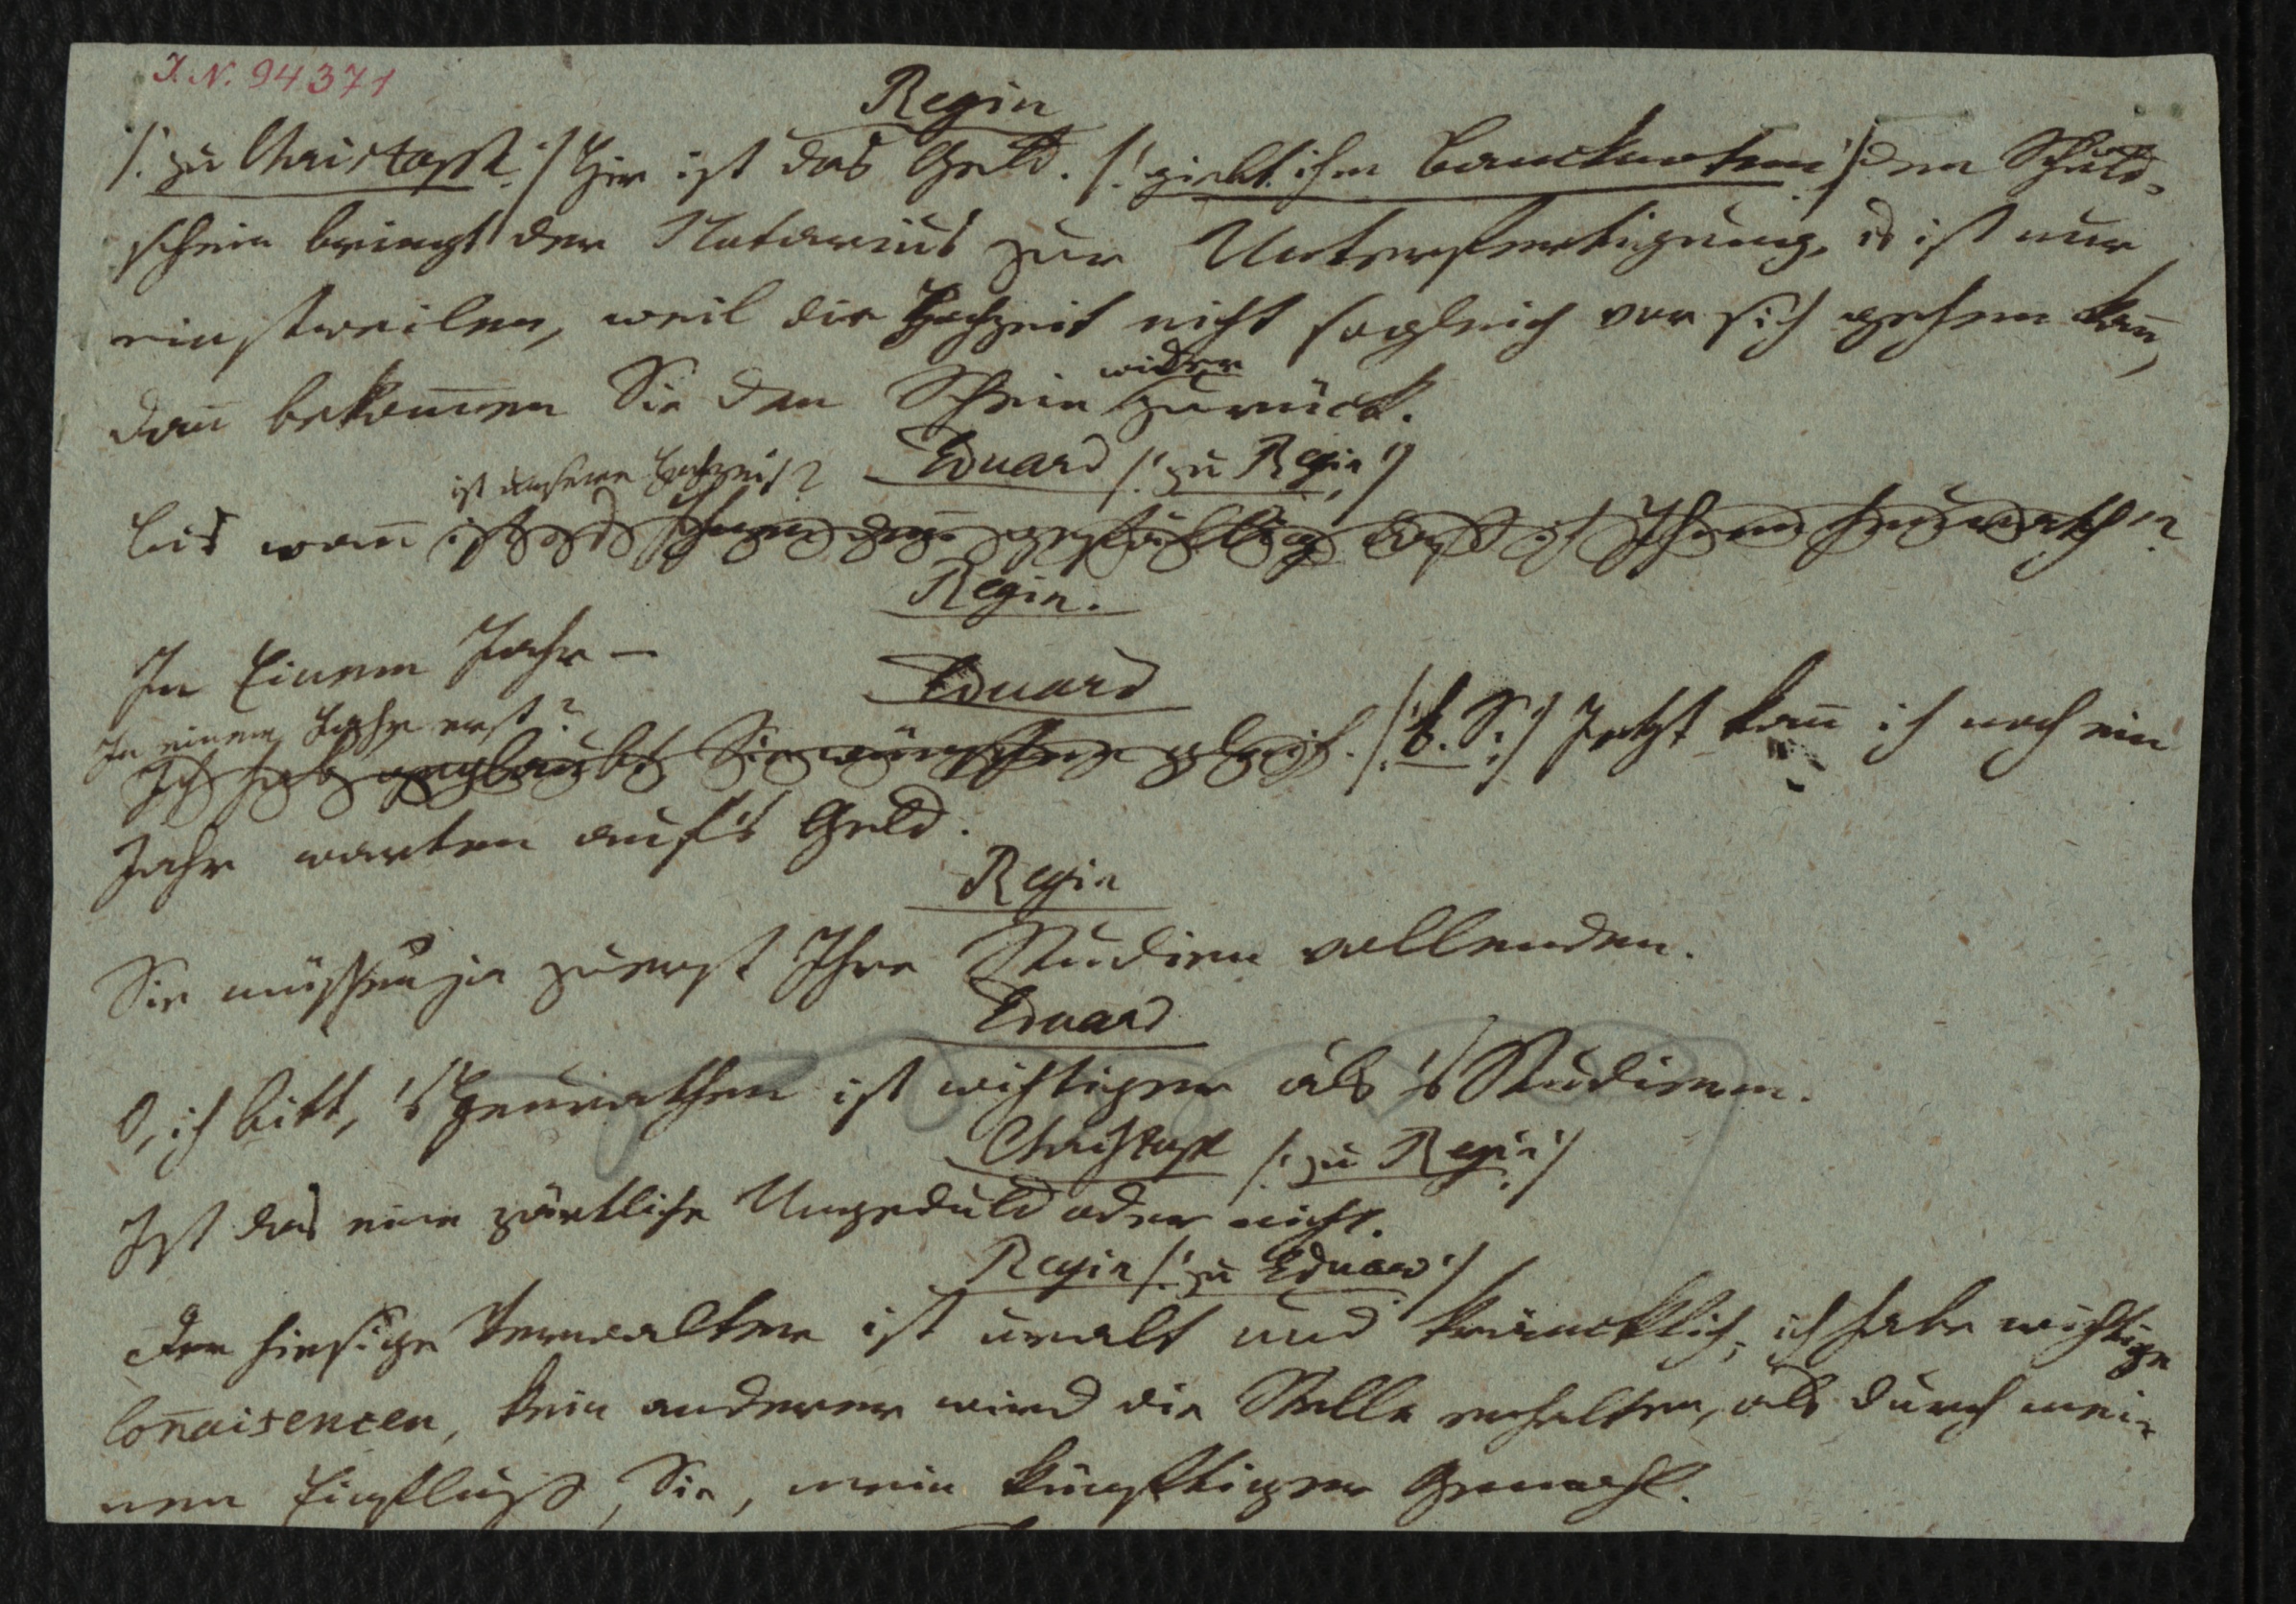 I. N. 94371
Regin
/: zu Christoph :/ Hier ist das Geld. /: giebt ihm Bancknoten :/ den Schuld-
schein bringt der Notarius zur Unterfertigung, es ist nur
einstweilen, weil die Hochzeit nicht sogleich vor sich gehen kan̅,
dan̅ bekom̅en Sie den Schein wieder zurück.
Eduard /: zu Regin :/
ist unsere Hochzeit?
Bis wan̅ ist es Ihnen den̅ gefällig daß ich Ihnen heurath'?
Regin.
In Einem Jahr –
Eduard
In einem Jahr erst?
Ich hab geglaubt Sie wünschen gleich. /: b. S. :/ Jetzt kan̅ ich noch ein
Jahr warten auf's Geld.
Regin
Sie müssen ja zuerst Ihre Studien vollenden.
Eduard
O, ich bitt, 's Heurathen ist wichtiger als 's Studieren.
Christoph /: zu Regin :/
Ist das eine zärtliche Ungeduld oder nicht.
Regin /: zu Eduard :/
Der hiesige Verwalter ist uralt und kräncklich, ich habe wichtige
Con̅aisencen, kein anderer wird die Stelle erhalten, als durch mei-
nen Einfluß, Sie, mein künftiger Gemahl.